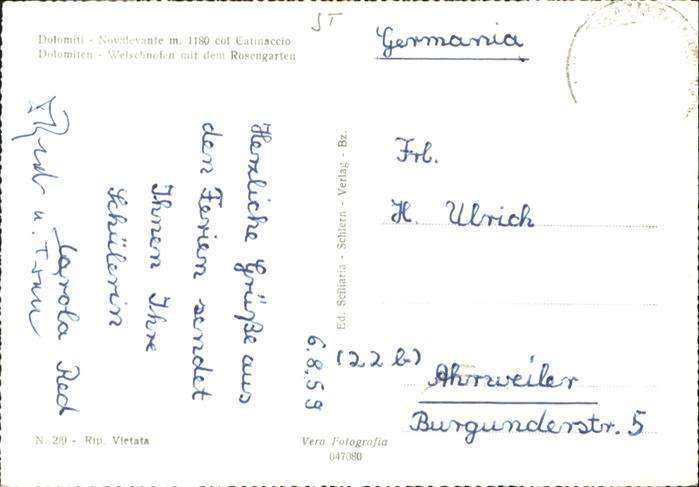 ST
Dolomiti - Novalevante m. 1180 col Catinaccio
Dolomiten - Welschnofen mit dem Rosengarten
Germania
6.8.59
Herzliche Grüße aus
den Ferien sendet
Ihnen Ihre
Schülerin
Carola Red
u. Frau
Ed. Sciliaria - Schlern - Verlag - Bz.
Frl.
H. Ulrich
(22b)
Ahrweiler
Burgunderstr. 5
N. 2/9 - Rip. Vietata
Vera Fotografia
047080